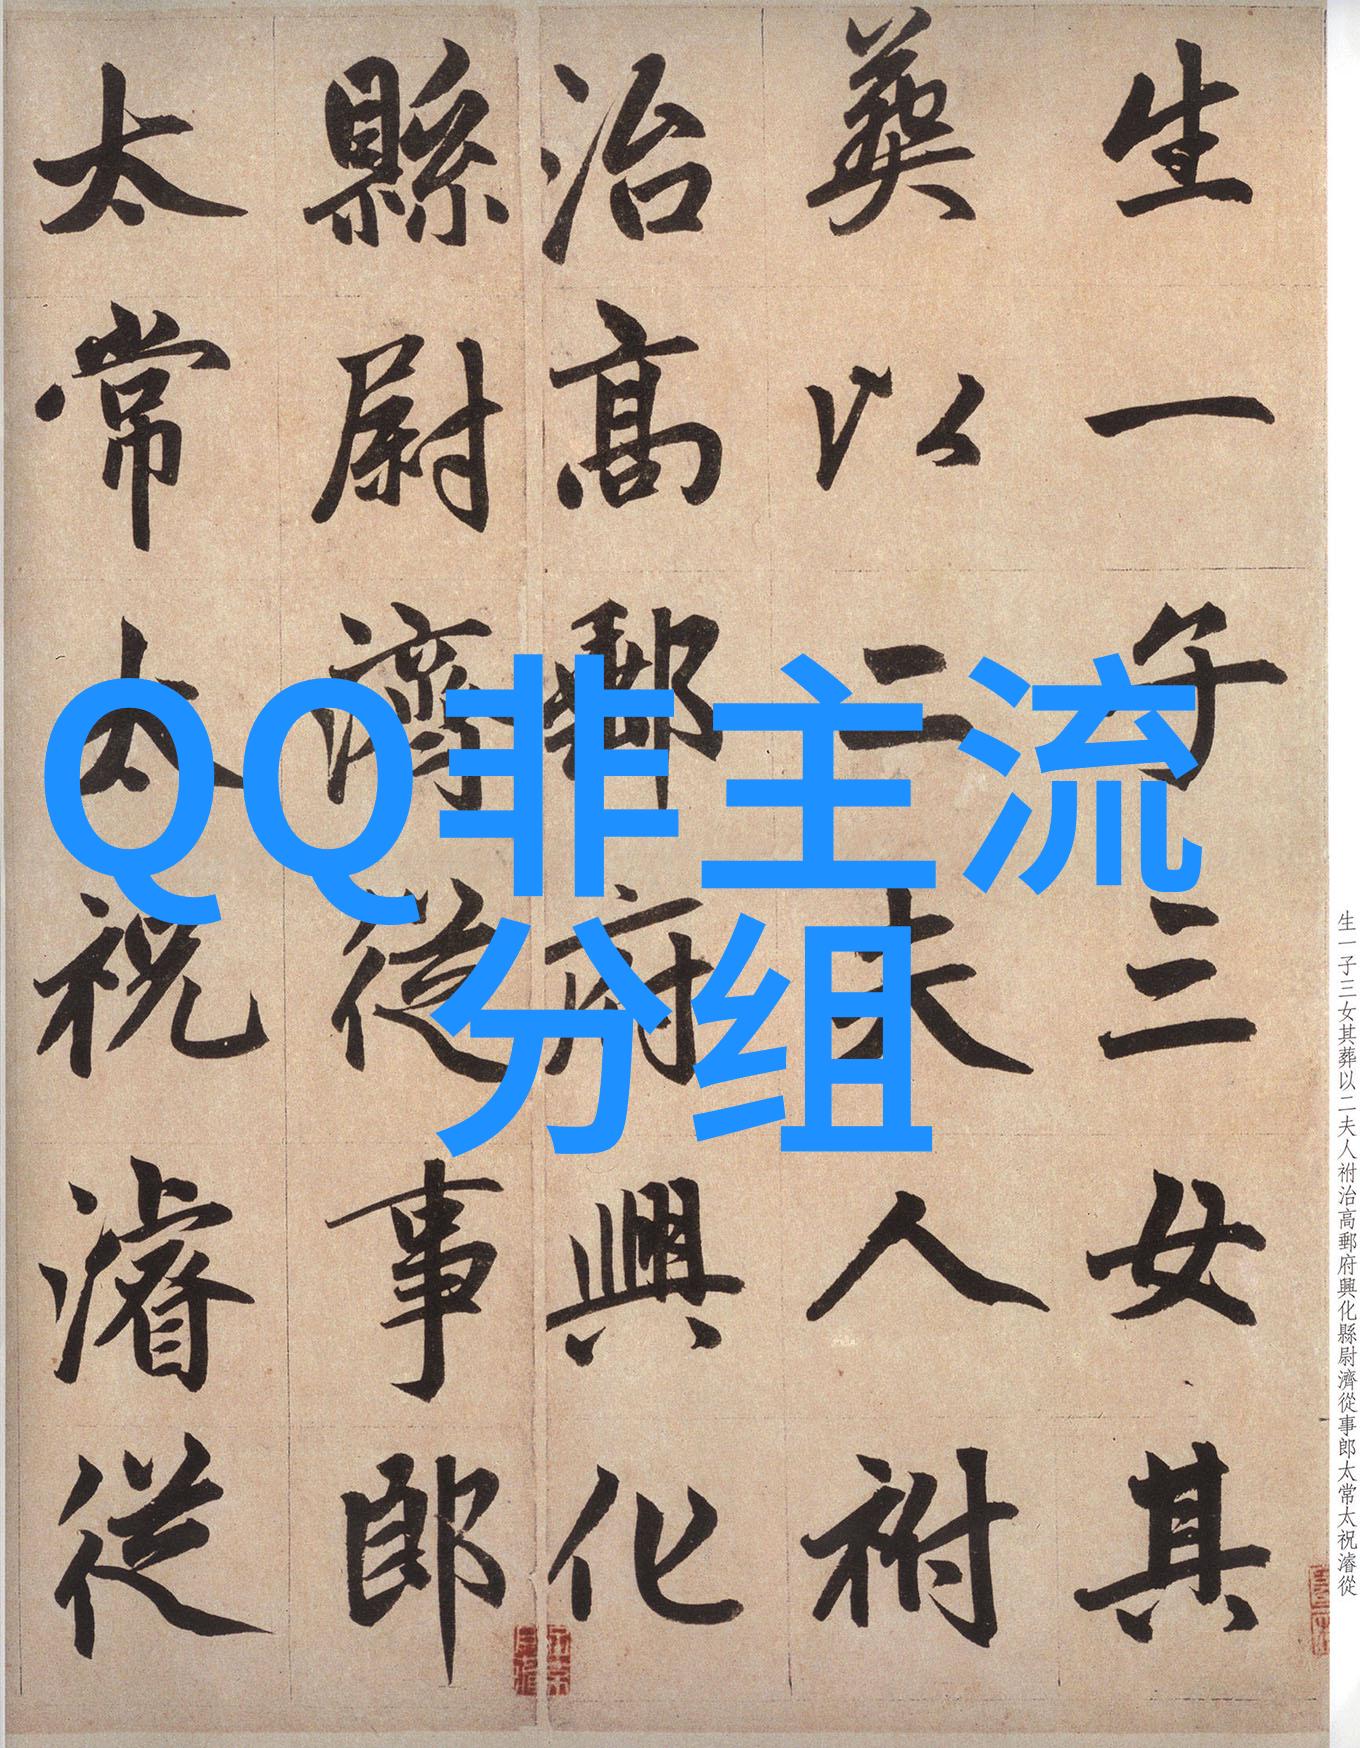 生一子三女其
葬以二夫人祔
治高郵府興化
縣尉濟從事郎
太常太祝濬從
QQ非主流
分组
生一子三女其葬以二夫人祔治高郵府興化縣尉濟從事郎太常太祝濬從